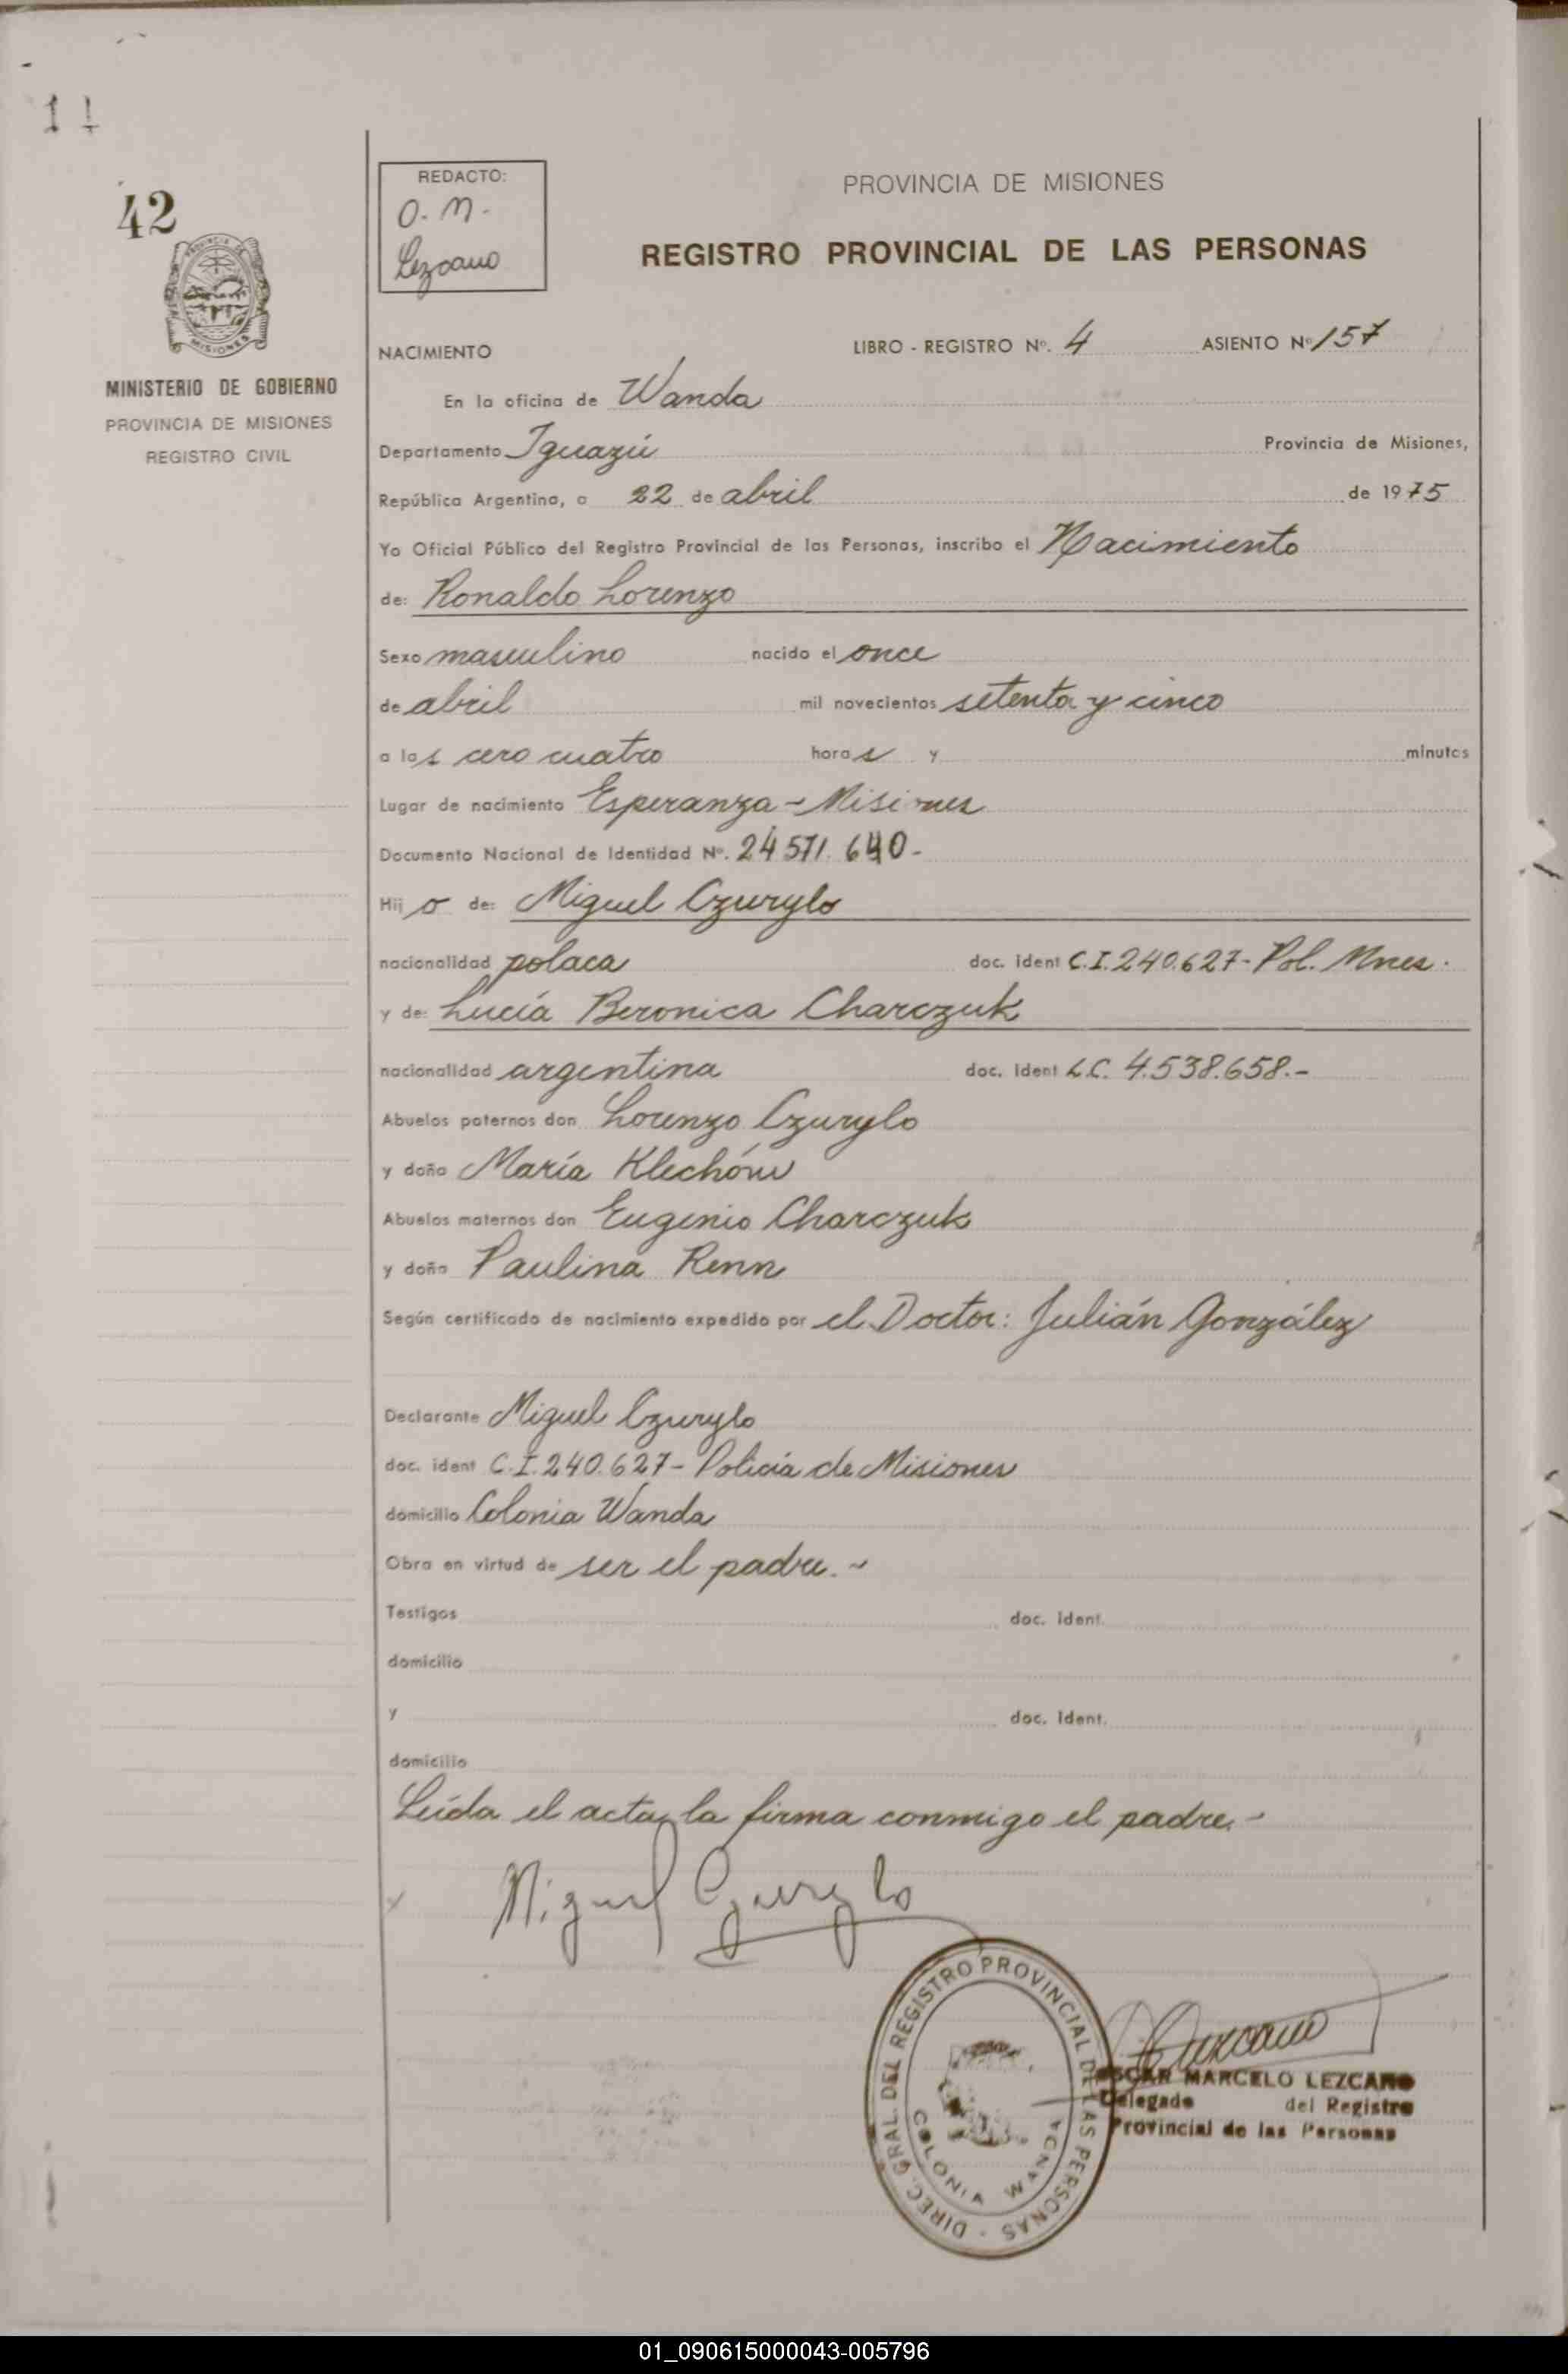 11
42
MISIONES
MINISTERIO DE GOBIERNO
PROVINCIA DE MISIONES
REGISTRO CIVIL
REDACTO:
O. M.
Lezcano
PROVINCIA DE MISIONES
REGISTRO PROVINCIAL DE LAS PERSONAS
NACIMIENTO LIBRO - REGISTRO Nº. 4 ASIENTO Nº 157
En la oficina de Wanda
Departamento Iguazú Provincia de Misiones,
República Argentina, a 22 de abril de 1975
Yo Oficial Público del Registro Provincial de las Personas, inscribo el Nacimiento
de: Ronaldo Lorenzo
Sexo masculino nacido el once
de abril mil novecientos setenta y cinco
a las cero cuatro horas y minutos
Lugar de nacimiento Esperanza - Misiones
Documento Nacional de Identidad Nº. 24 571. 640-
Hijo de: Miguel Czurylo
nacionalidad polaca doc. ident C.I. 240.627- Pol. Mnes.
y de: Lucía Beronica Charczuk
nacionalidad argentina doc. ident L.C. 4.538.658.-
Abuelos paternos don Lorenzo Czurylo
y doña María Klechów
Abuelos maternos don Eugenio Charczuk
y doña Paulina Renn
Según certificado de nacimiento expedido por el Doctor: Julián González
Declarante Miguel Czurylo
doc. ident C.I. 240.627- Policía de Misiones
domicilio Colonia Wanda
Obra en virtud de ser el padre. ~
Testigos doc. ident.
domicilio
y doc. ident.
domicilio
Leída el acta, la firma conmigo el padre.-
Miguel Czurylo
DIREC. GRAL. DEL REGISTRO PROVINCIAL DE LAS PERSONAS -
COLONIA WANDA
Lezcano
OSCAR MARCELO LEZCANO
Delegado del Registro
Provincial de las Personas
01_090615000043-005796